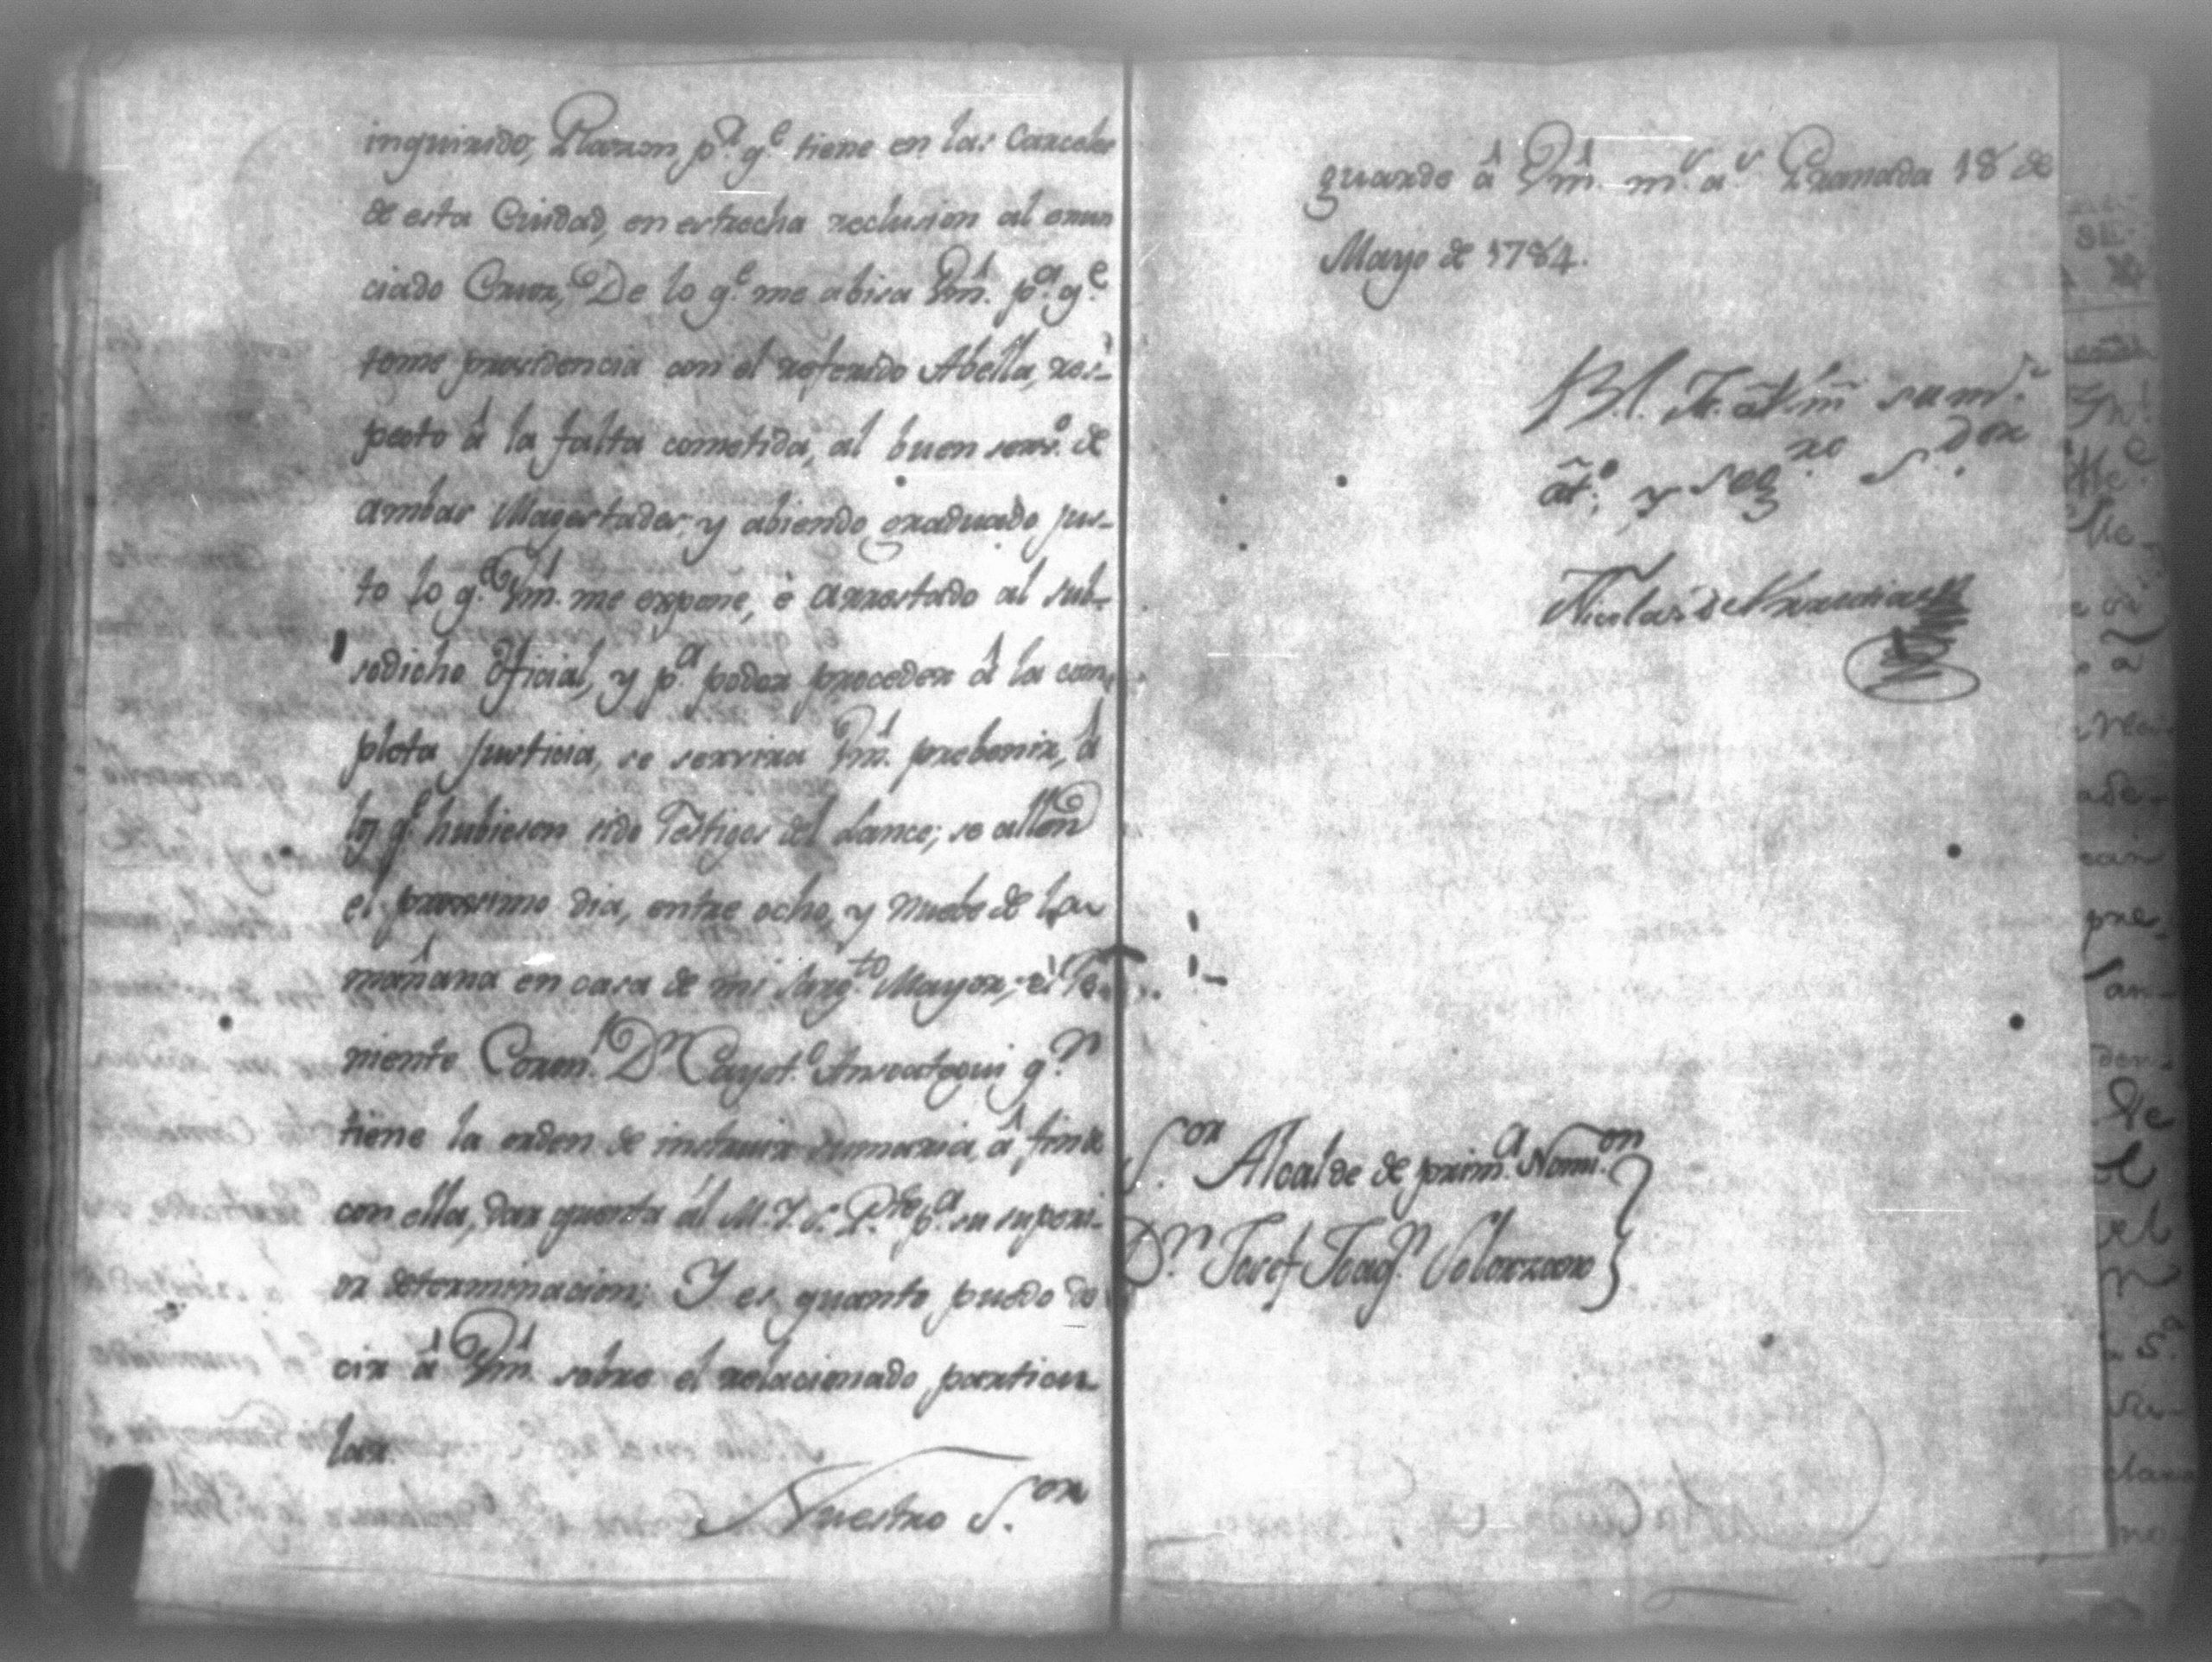 inquirido, Razon pª. qe. tiene en las Carceles
de esta Ciudad, en estrecha reclusion al enun
ciado Cruz, De lo qe. me abisa Vm. pª. qe.
tome providencia con el referido Abella, res-
pecto â la falta cometida, al buen serv.º de
ambas Magestades; y abiendo graduado jus-
to lo qe. Vm. me expone, è arrestado al sub-
sodicho oficial, y pª. poder proceder â la com-
pleta justicia, se servira Vm. prebenir, â
los qe. hubiesen sido Testigos del Lance; se allen
el proximo dia, entre ocho, y nuebe de la
mañana en casa de mi Sargto. Mayor, el Te-
niente Coron.l Dn. Cayet.º Ansoategui qn.
tiene la orden de instruir sumaria, â fin de
con ella, dar quenta âl M. Y. S. P.te pª. su superi-
or determinacion; Y es quanto puedo de
cir â Vm. sobre el relacionado particu-
lar.
Nuestro S.or
guarde â Vm. ms. as. Granada 18 de
Mayo de 1784.
B. l. m. â Vm su m.r
at.º y seg.ro s.dor
Nicolas de
S.or Alcalde de prim.ª Nomi.on
Dn. Josef Joaqn. Solorzano